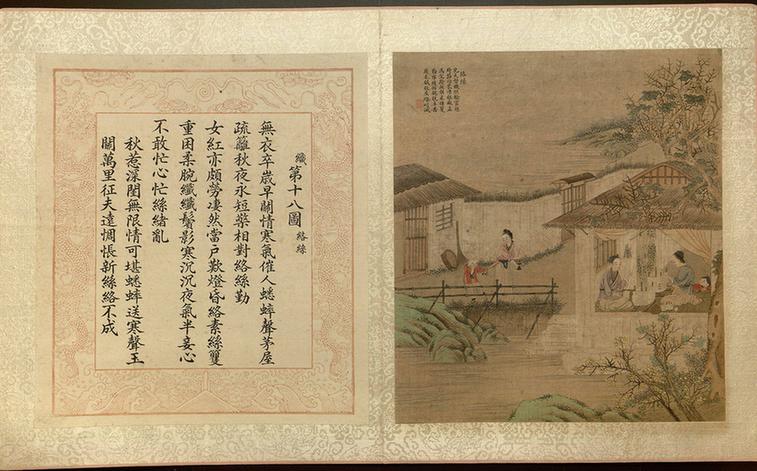 織第十八圖 絡絲
無衣卒歲早關情寒氣催人蟋蟀聲茅屋
疏籬秋夜永短檠相對絡絲勤
女紅亦頗勞凄然當戶歎燈昏絡素絲雙
重因柔腕纖纖鬢影寒沉沉夜氣半妾心
不敢忙心忙絲緒亂
秋惹深閨無限情可堪蟋蟀送寒聲玉
關萬里征夫遠惆悵新絲絡不成
絡絲